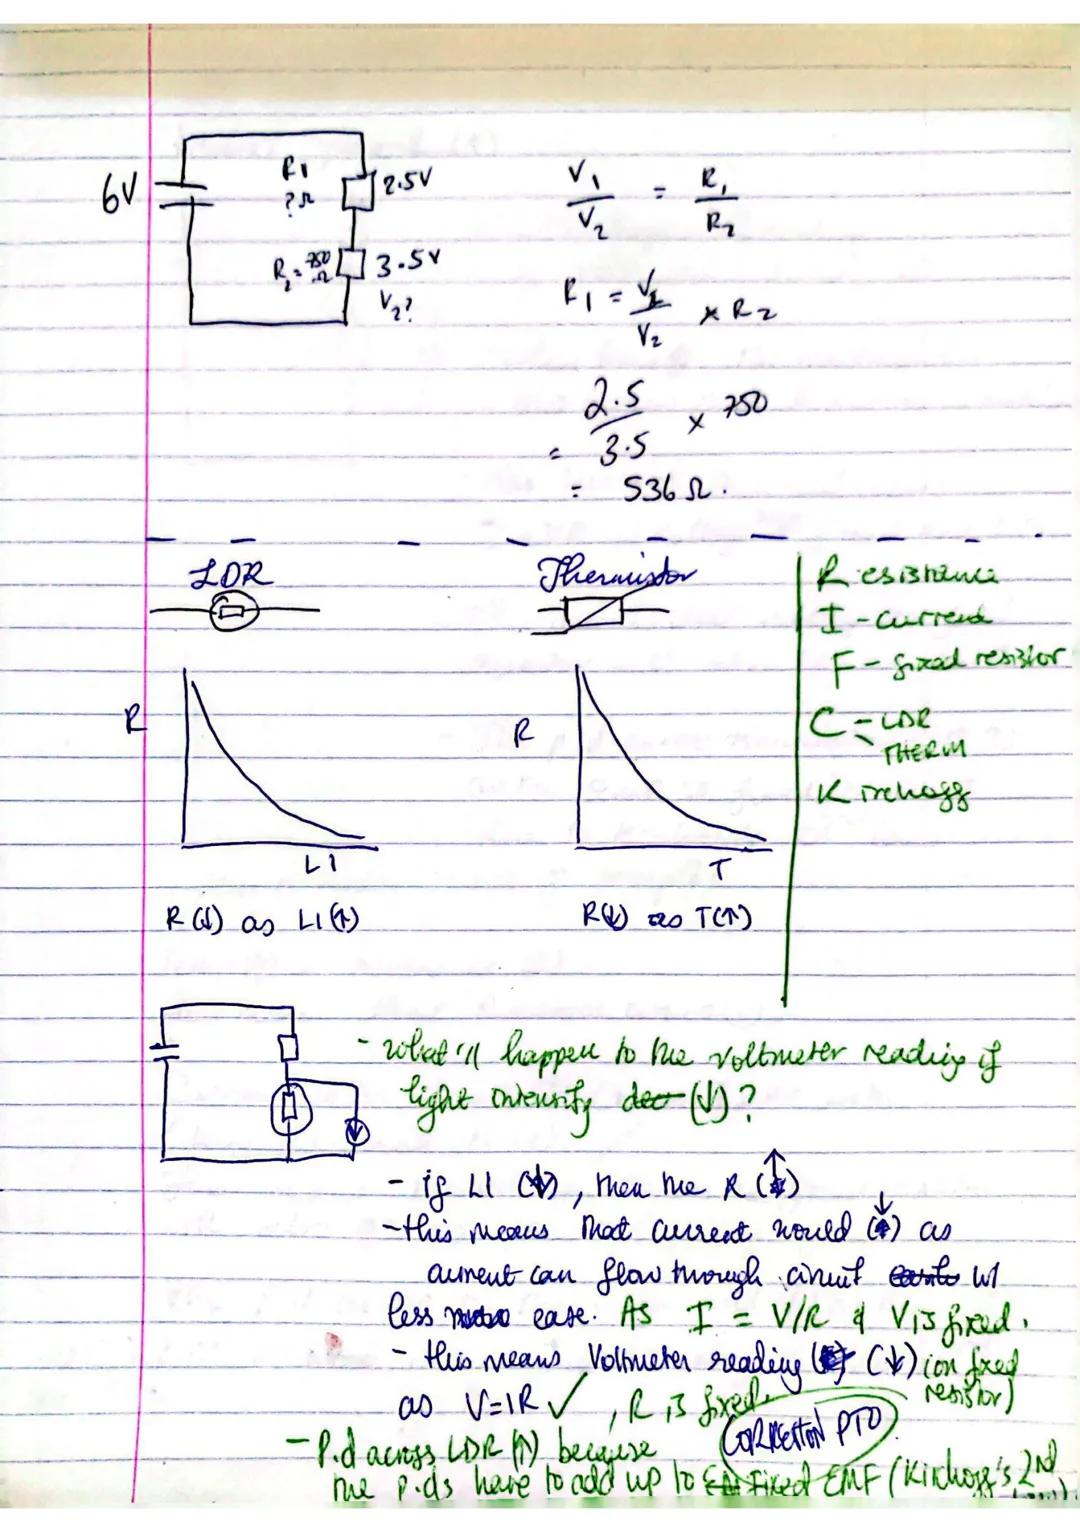 6V
R1
? Ω
2.5V
R2 = 750 Ω
3.5V
V2?
V1/V2 = R1/R2
R1 = V1/V2 × R2
= 2.5/3.5 × 750
= 536 Ω.
LDR
Thermistor
R
LI
R(↓) as LI(↑)
R
T
R(↓) as T(↑)
Resistance
I - current
F - fixed resistor
C - LDR
- THERM
Kirchoff
- what'll happen to the voltmeter reading if
light intensity dec (↓)?
- if LI (↓), then the R (↑)
- this means that current would (↓) as
current can flow through circuit w/
less ease. As I = V/R & V is fixed.
- this means Voltmeter reading (↓) (on fixed
resistor)
as V=IR ✓, R is fixed.
CORRECTION PTO
- P.d across LDR (↑) because
the p.ds have to add up to fixed EMF (Kirchoff's 2nd